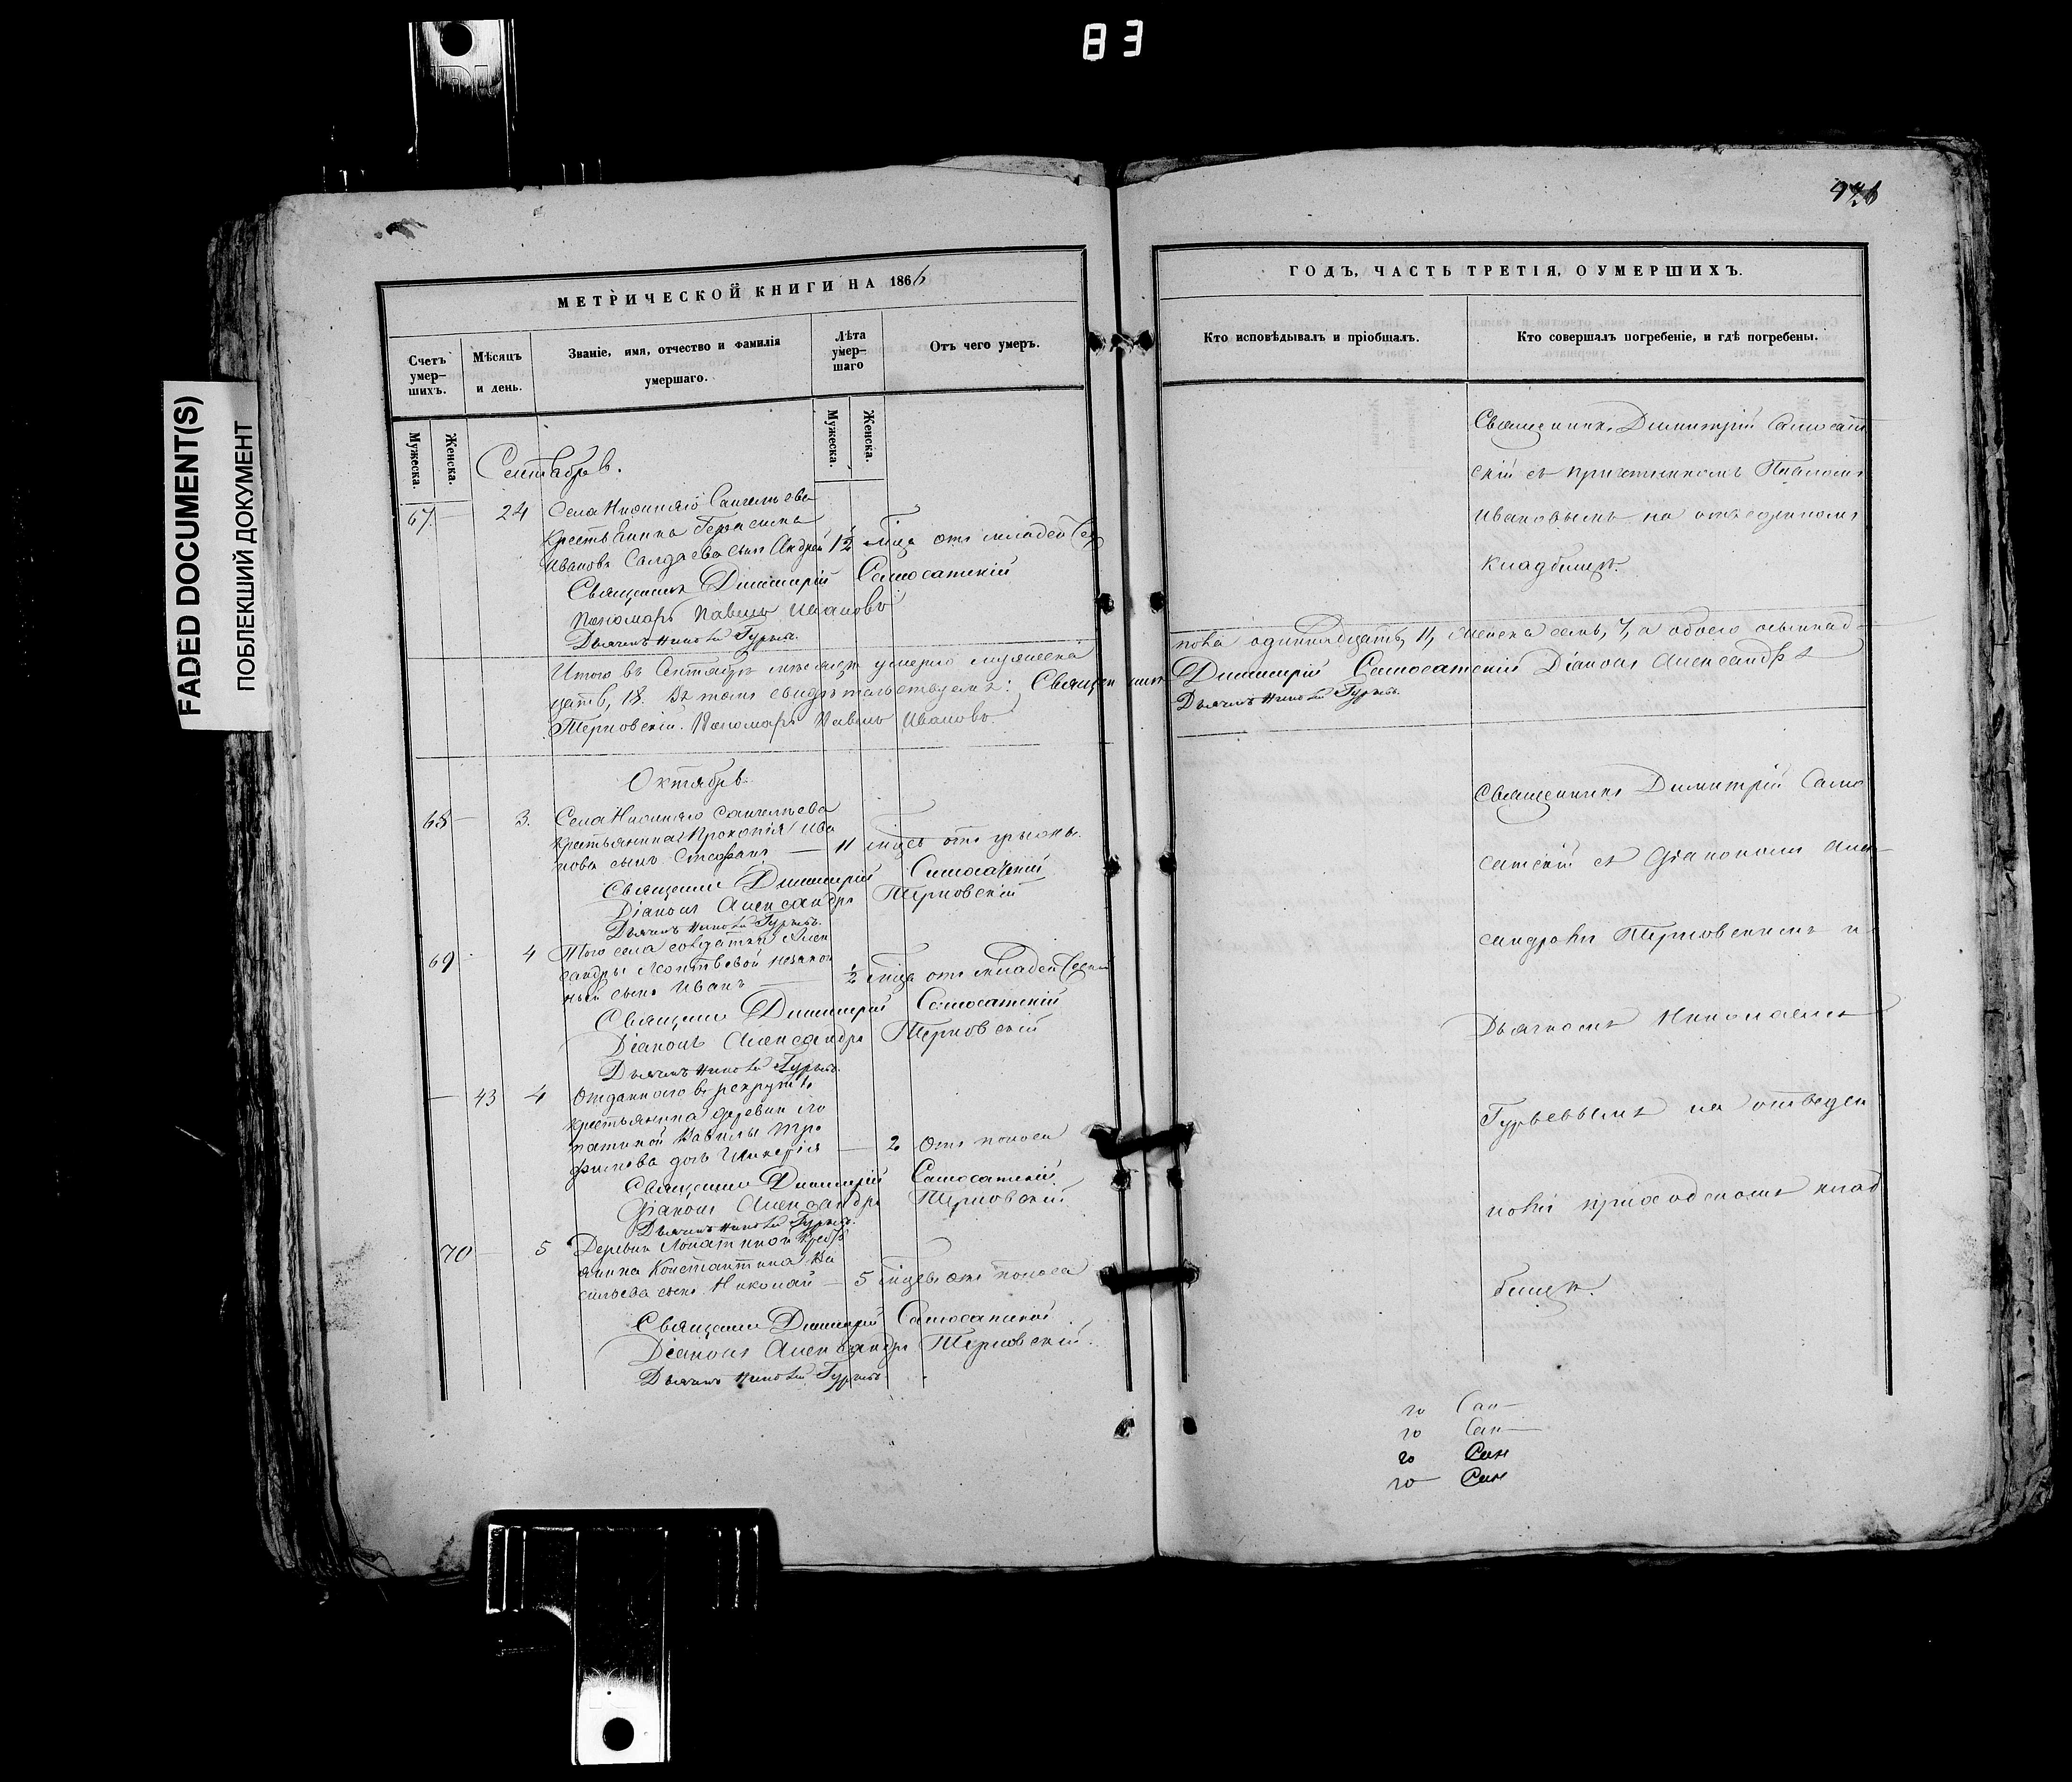 83
FADED DOCUMENT(S)
ПОБЛЕКШИЙ ДОКУМЕНТ
МЕТРИЧЕСКОЙ КНИГИ НА 1866
Счетъ умер-шихъ.
Мѣсяцъ и день.
Званіе, имя, отчество и фамилія умершаго.
Лѣта умер-шаго
Отъ чего умеръ.
Мужеска.
Женска.
Мужеска.
Женска.
Сентябрь.
67 24 Села Нижняго
крестьянина Герасима
Иванова сынъ Андрей 1½ мца отъ младен
Священникъ Димитрій Самосатскій
Пономарь Павелъ Ивановъ
Дьячекъ Николай Гурьевъ.
Итого въ Сентябрѣ мѣсяцѣ умерло мужеска
цать, 18. Въ томъ свидѣтельствуемъ: Священникъ
Терновскій. Пономарь Павелъ Ивановъ.
Октябрь
68 3. Села Нижняго
крестьянина Прокопія Ива
нова сынъ Стефанъ 11 мцевъ отъ грыжи.
Священникъ Димитрій Самосатскій
Діаконъ Александръ Терновскій
Дьячекъ Николай Гурьевъ.
69 4 Того села солдатки Алек
сандры незакон
ный сынъ Иванъ ½ мца отъ младен
Священникъ Димитрій Самосатскій
Діаконъ Александръ Терновскій
Дьячекъ Николай Гурьевъ.
43 4 Отданного въ рекруты
крестьянина деревни Ло
патиной Вавилы Тро
фимова дочь Гликерія 2 Отъ поноса
Священникъ Димитрій Самосатскій
Діаконъ Александръ Терновскій
Дьячекъ Николай Гурьевъ.
70 5 Деревни Лопатиной крест
янина Константина Ва
сильева сынъ Николай 5 мцевъ отъ поноса
Священникъ Димитрій Самосатскій
Діаконъ Александръ Терновскій.
Дьячекъ Николай Гурьевъ.
ГОДЪ, ЧАСТЬ ТРЕТІЯ, О УМЕРШИХЪ.
Кто исповѣдывалъ и пріобщалъ.
Кто совершалъ погребеніе, и гдѣ погребены.
Священникъ Димитрій Самосат
скій съ причетникомъ Павломъ
Ивановымъ на отведенномъ
кладбищѣ.
пола одиннадцать, 11, женска семь, 7, а обоего осьмнад
Димитрій Самосатскій Діаконъ Александръ
Дьячекъ Николай Гурьевъ.
Священникъ Димитрій Само
сатскій съ Діакономъ Алек
сандромъ Терновскимъ и
Дьячкомъ Николаемъ
Гурьевымъ на отведен
номъ приходскомъ клад
бищѣ.